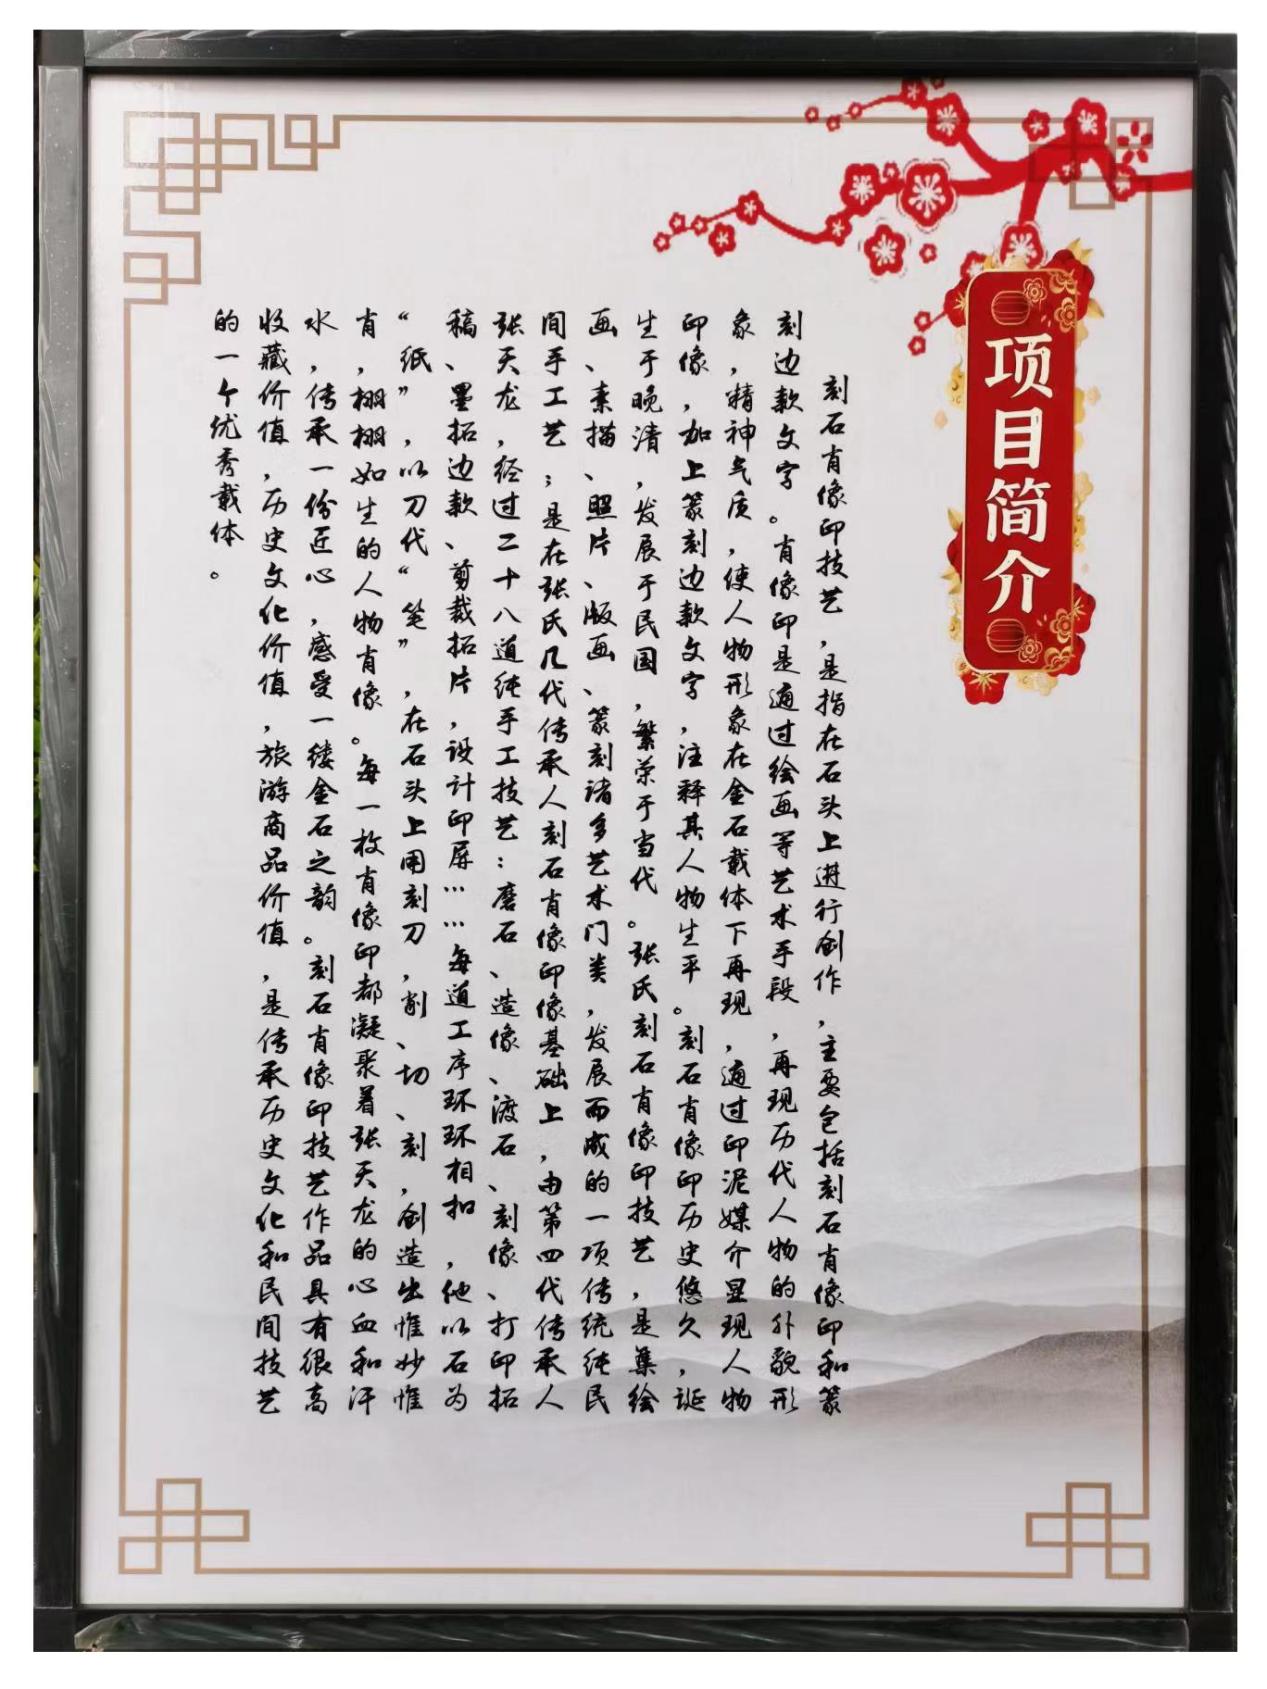 项目简介
刻石肖像印技艺，是指在石头上进行创作，主要包括刻石肖像印和篆
刻边款文字。肖像印是通过绘画等艺术手段，再现历代人物的外貌形
象，精神气质，使人物形象在金石载体下再现，通过印泥媒介显现人物
印像，加上篆刻边款文字，注释其人物生平。刻石肖像印历史悠久，诞
生于晚清，发展于民国，繁荣于当代。张氏刻石肖像印技艺，是集绘
画、素描、照片、版画、篆刻诸多艺术门类，发展而成的一项传统纯民
间手工艺；是在张氏几代传承人刻石肖像印像基础上，由第四代传承人
张天龙，经过二十八道纯手工技艺：磨石、造像、渡石、刻像、打印拓
稿、墨拓边款、剪裁拓片，设计印屏……每道工序环环相扣，他以石为
“纸”，以刀代“笔”，在石头上用刻刀，削、切、刻，创造出惟妙惟
肖，栩栩如生的人物肖像。每一枚肖像印都凝聚着张天龙的心血和汗
水，传承一份匠心，感受一缕金石之韵。刻石肖像印技艺作品具有很高
收藏价值，历史文化价值，旅游商品价值，是传承历史文化和民间技艺
的一个优秀载体。